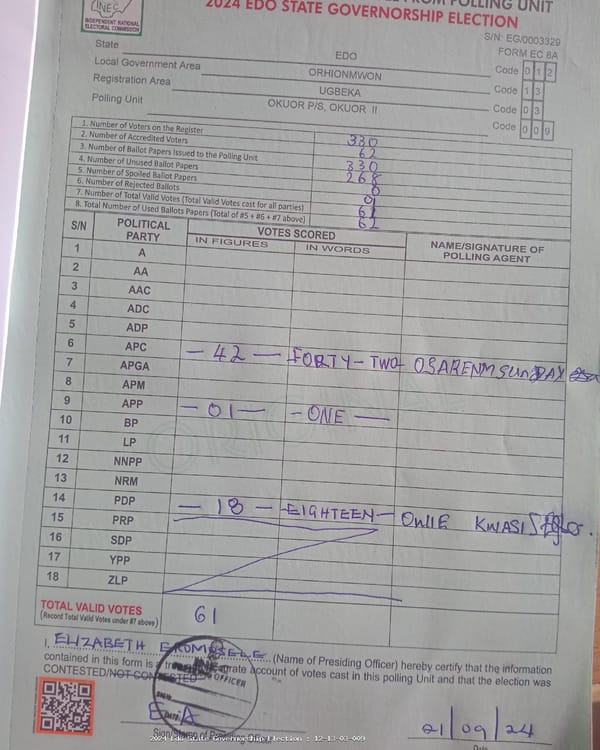 INEC
INDEPENDENT NATIONAL
ELECTORAL COMMISSION
POLLING UNIT
2024 EDO STATE GOVERNORSHIP ELECTION
S/N: EG/0003329
FORM EC 8A
State EDO Code 0 1 2
Local Government Area ORHIONMWON Code 1 3
Registration Area UGBEKA Code 0 3
Polling Unit OKUOR P/S, OKUOR II Code 0 0 9
1. Number of Voters on the Register 330
2. Number of Accredited Voters 62
3. Number of Ballot Papers Issued to the Polling Unit 330
4. Number of Unused Ballot Papers 268
5. Number of Spoiled Ballot Papers 0
6. Number of Rejected Ballots 01
7. Number of Total Valid Votes (Total Valid Votes cast for all parties) 61
8. Total Number of Used Ballots Papers (Total of #5 + #6 + #7 above) 62
S/N POLITICAL PARTY VOTES SCORED NAME/SIGNATURE OF POLLING AGENT
IN FIGURES IN WORDS
1 A
2 AA
3 AAC
4 ADC
5 ADP
6 APC - 42 - FORTY-TWO OSARENM SUNDAY
7 APGA
8 APM
9 APP - 01 - - ONE -
10 BP
11 LP
12 NNPP
13 NRM
14 PDP - 18 - EIGHTEEN - OWIE KWASI
15 PRP
16 SDP
17 YPP
18 ZLP
TOTAL VALID VOTES 61
(Record Total Valid Votes under #7 above)
I, ELIZABETH (Name of Presiding Officer) hereby certify that the information
contained in this form is a true account of votes cast in this polling Unit and that the election was
CONTESTED/NOT CONTESTED
INEC
OFFICER
DATE
21/09/24
2024 Edo State Governorship Election : 12-13-03-009